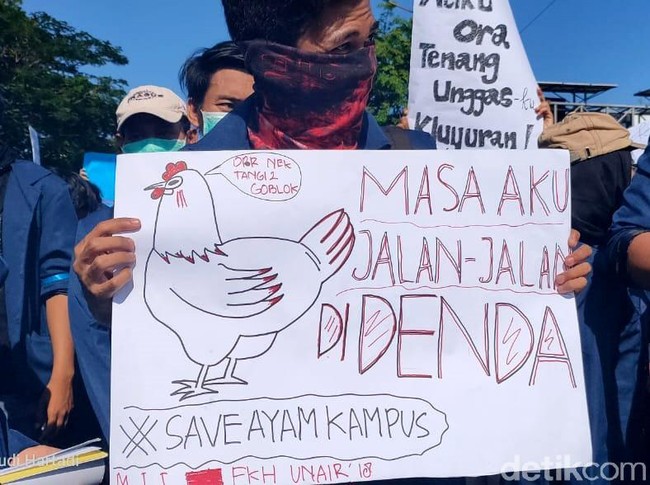 ORA
TENANG
UNGGAS-ku
KLUYURAN!
NEK
GOBLOK
MASA AKU
JALAN-JALAN
DI DENDA
SAVE AYAM KAMPUS
FKH UNAIR '18
detikcom